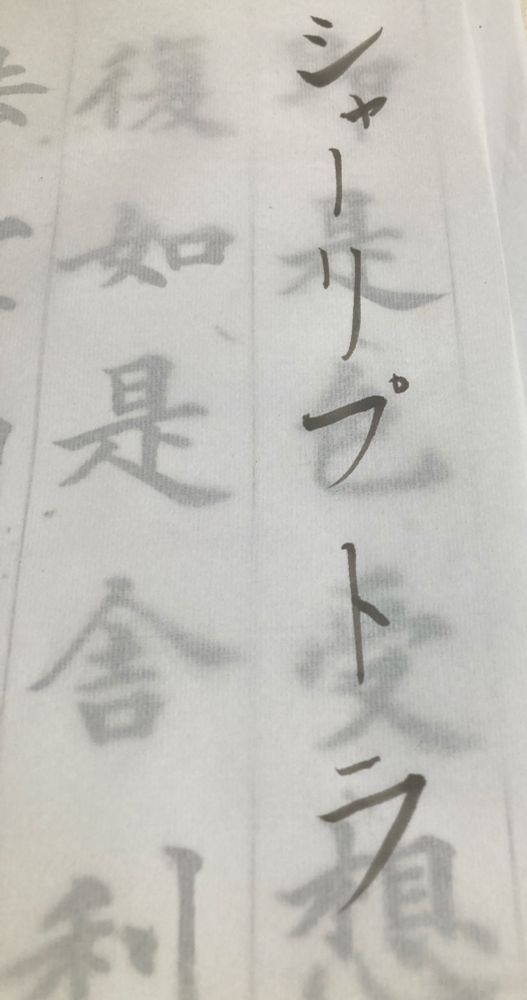 シャーリプトラ
是色受想
復如是舎利